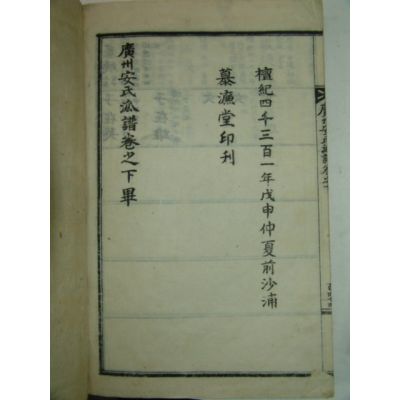 檀紀四千三百一年戊申仲夏前沙浦
慕濂堂印刊
廣州安氏派譜卷之下畢